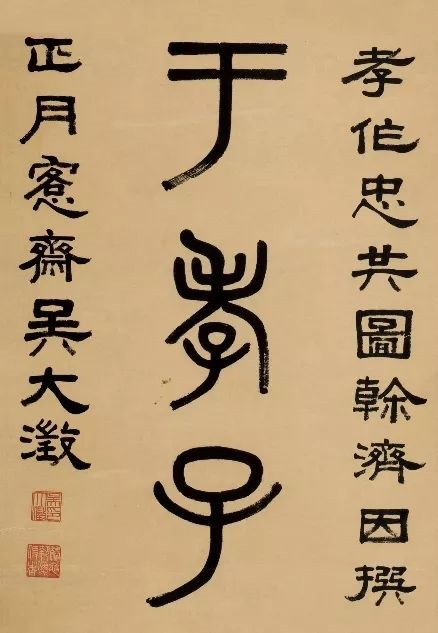 孝作忠共圖榦濟因撰
于孝子
正月愙齋吳大澂